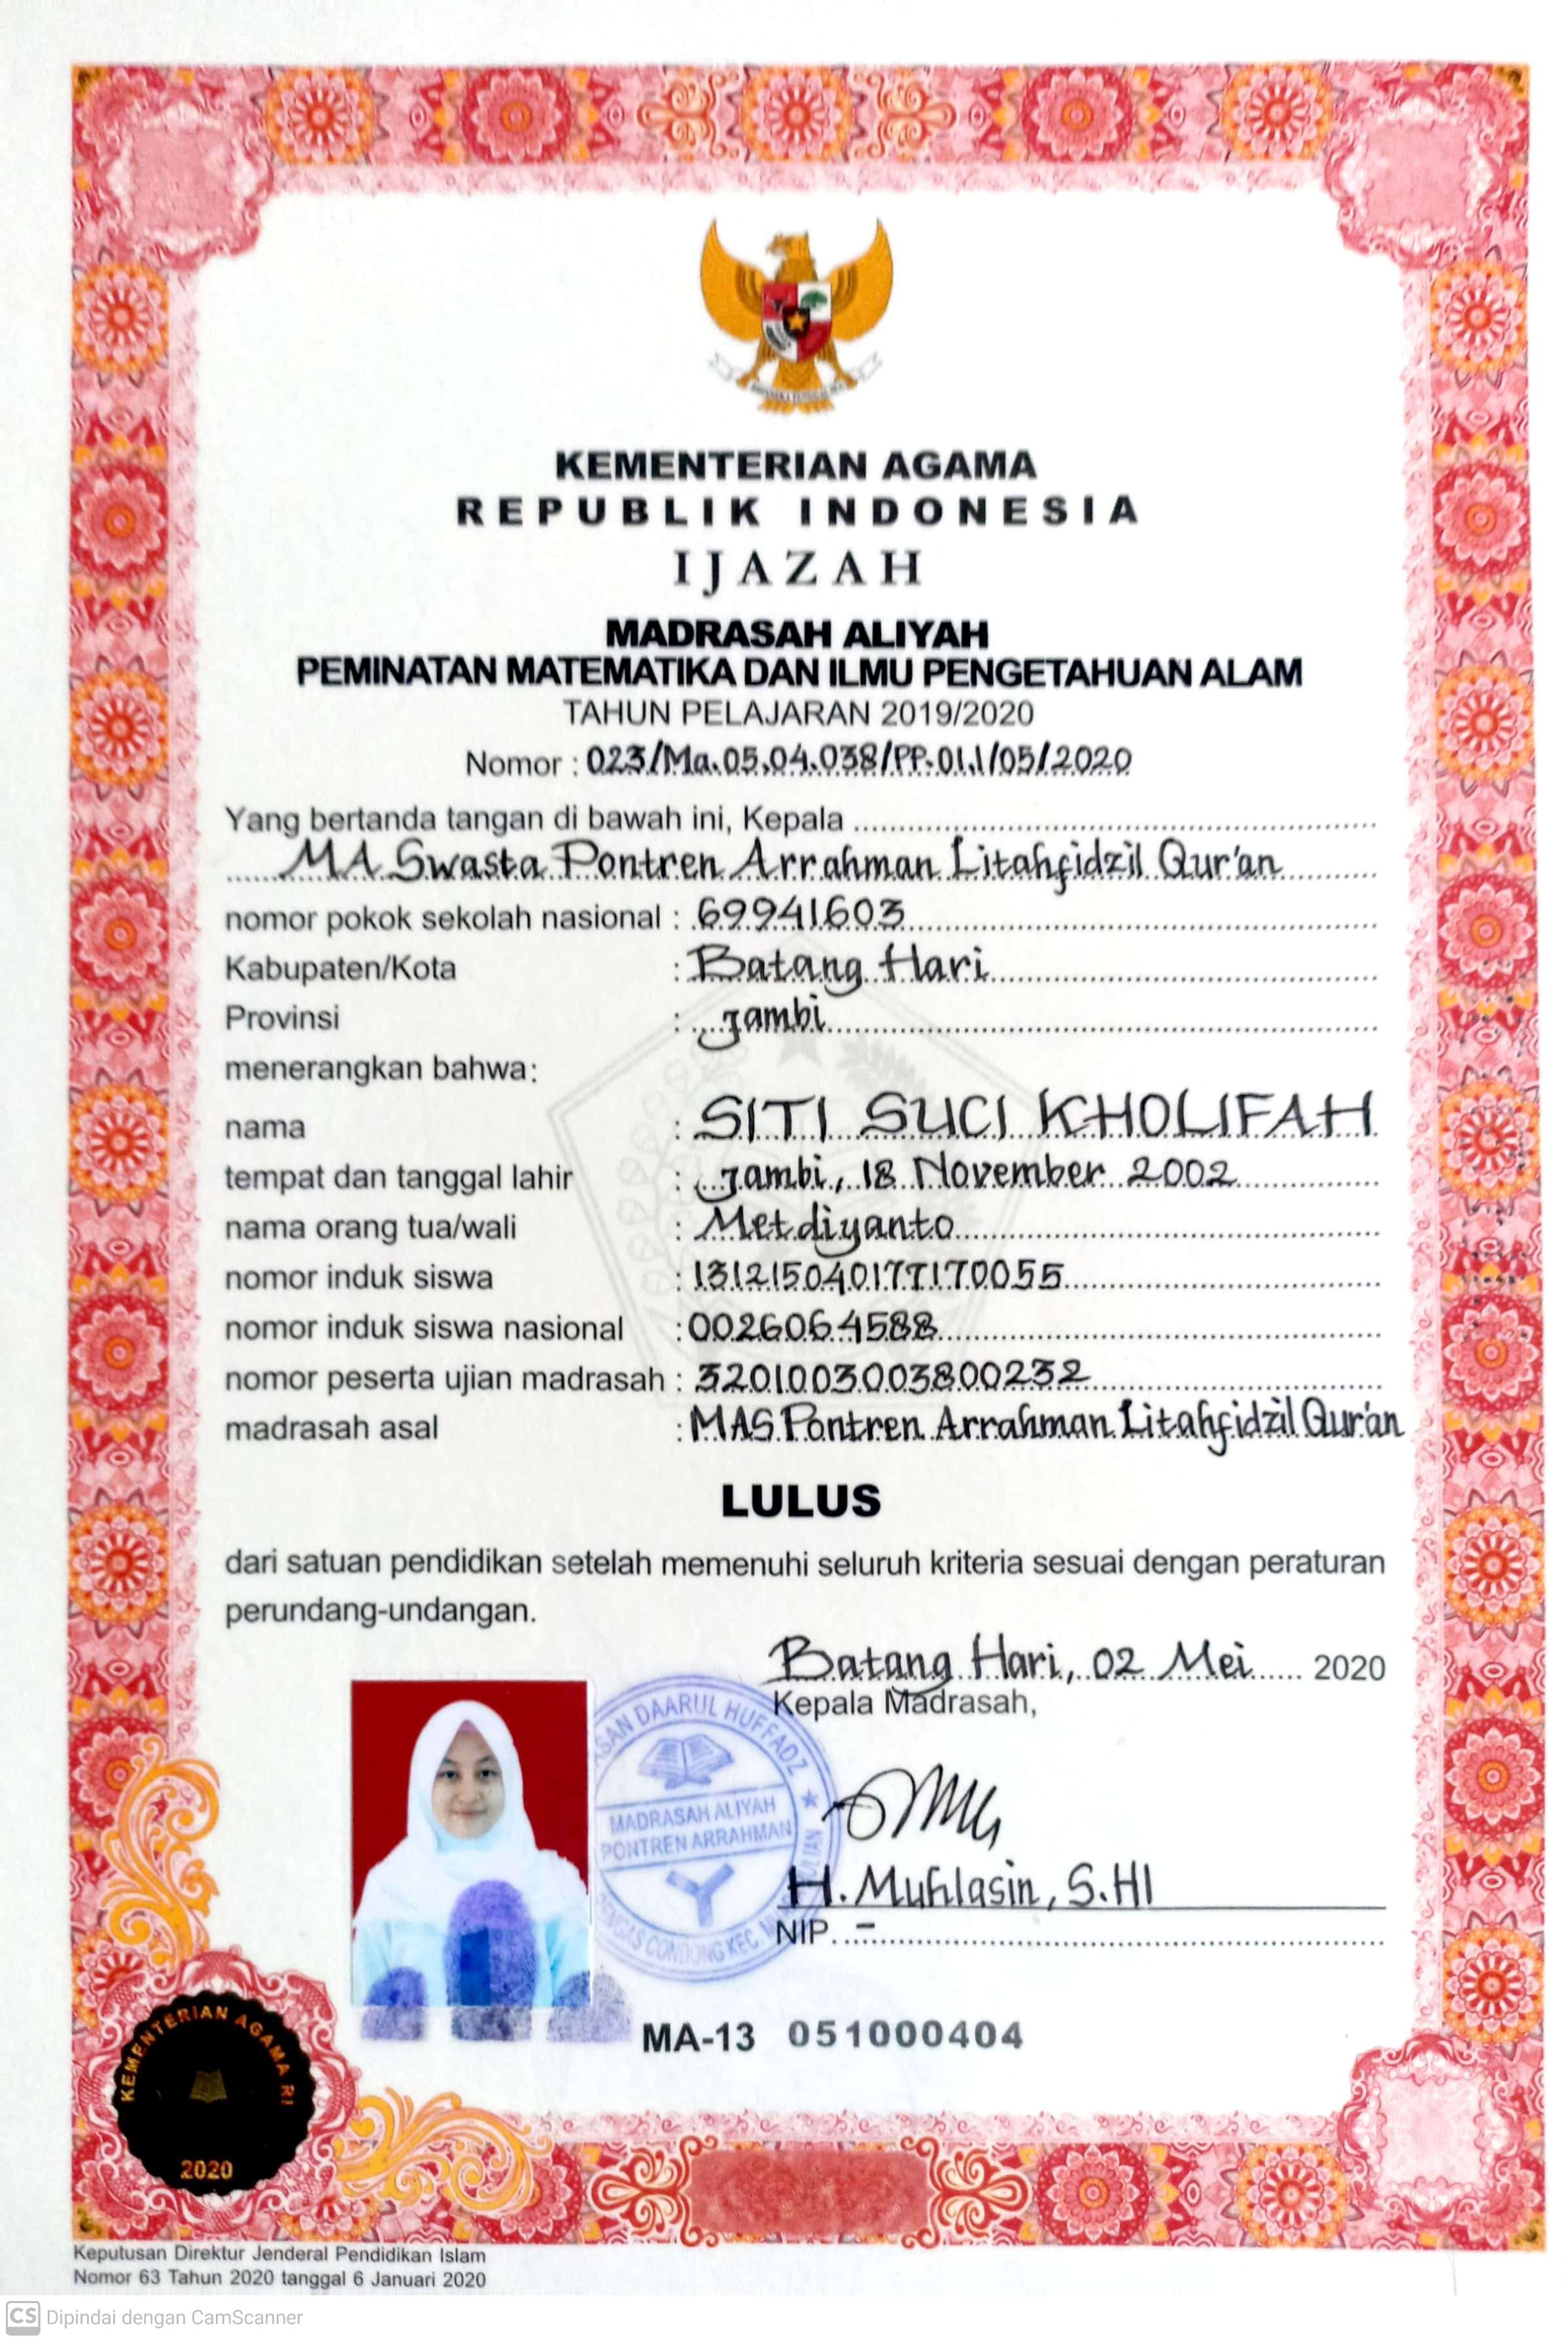 KEMENTERIAN AGAMA
REPUBLIK INDONESIA
IJAZAH
MADRASAH ALIYAH
PEMINATAN MATEMATIKA DAN ILMU PENGETAHUAN ALAM
TAHUN PELAJARAN 2019/2020
Nomor : 023/Ma.05.04.038/PP.01.1/05/2020
Yang bertanda tangan di bawah ini, Kepala
MA Swasta Pontren Arrahman Litahfidzil Qur'an
nomor pokok sekolah nasional : 69941603
Kabupaten/Kota : Batang Hari
Provinsi : Jambi
menerangkan bahwa:
nama : SITI SUCI KHOLIFAH
tempat dan tanggal lahir : Jambi, 18 November 2002
nama orang tua/wali : Metdiyanto
nomor induk siswa : 131215040177170055
nomor induk siswa nasional : 0026064588
nomor peserta ujian madrasah : 3201003003800232
madrasah asal : MAS Pontren Arrahman Litahfidzil Qur'an
LULUS
dari satuan pendidikan setelah memenuhi seluruh kriteria sesuai dengan peraturan
perundang-undangan.
Batang Hari, 02 Mei 2020
Kepala Madrasah,
DAARUL HUFFADZ
MADRASAH ALIYAH
PONTREN ARRAHMAN
CONDONG KEC.
H. Muhlasin, S.HI
NIP. -
MA-13 051000404
KEMENTERIAN AGAMA RI
2020
Keputusan Direktur Jenderal Pendidikan Islam
Nomor 63 Tahun 2020 tanggal 6 Januari 2020
CS Dipindai dengan CamScanner